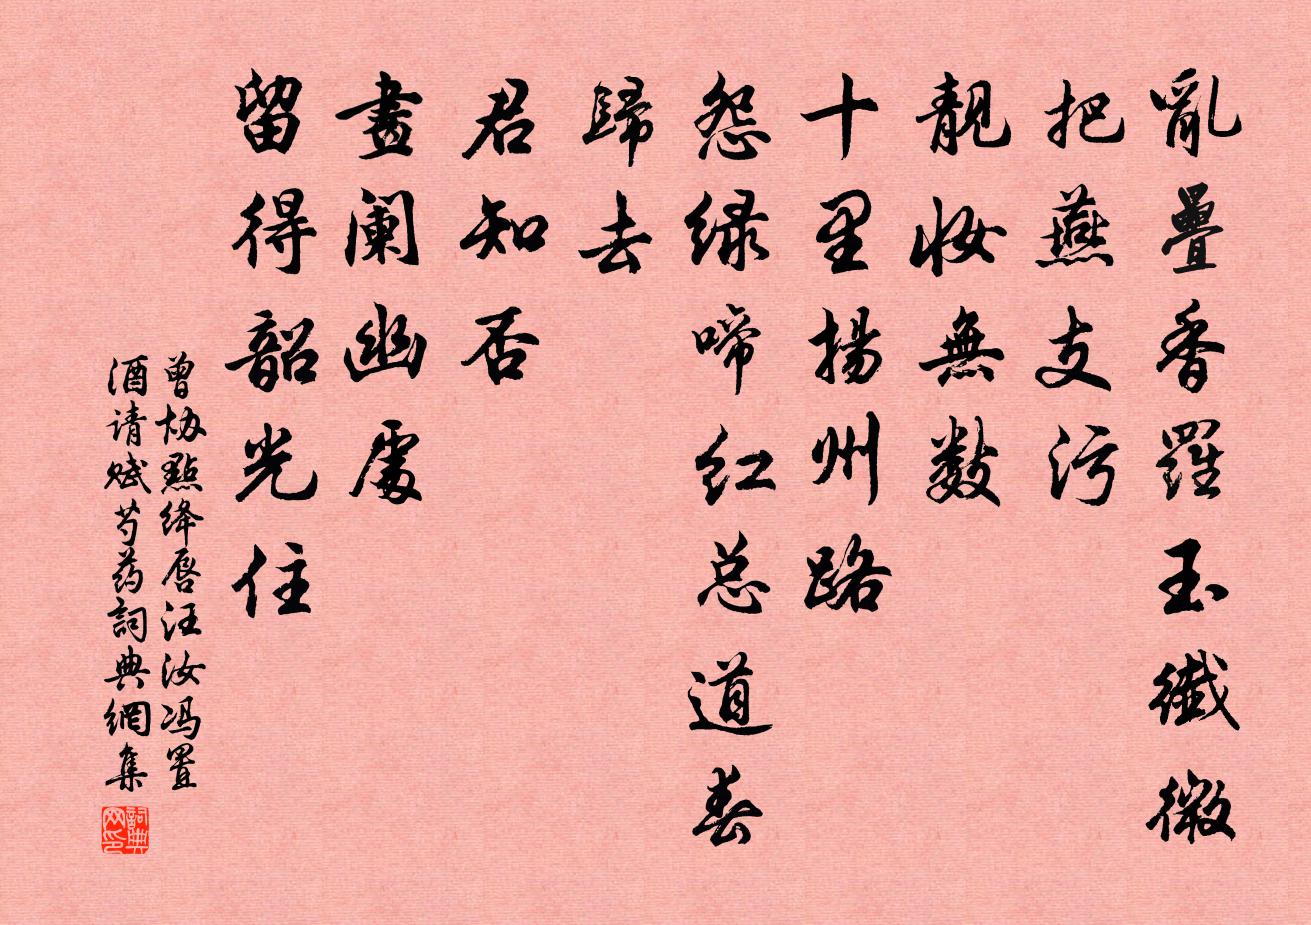 亂疊香羅玉纖微
把燕支污
靚妝無數
十里揚州路
怨绿啼红总道春
歸去
君知否
畫阑幽處
留得韶光住
曾协點绛唇汪汝冯置
酒请赋芍药詞典網集
詞典网印